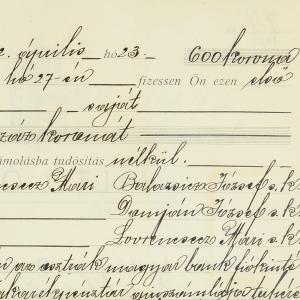 április hó 23. 600 korona
hó 27-én fizessen Ön ezen első
saját
száz koronát
számolásba tudósítás nélkül.
Mári Balázsics József s.k.
Damján József s.k.
Lovrencsecz Mári s.k.
az osztrák magyar bank fiókinté
takarékpénztár